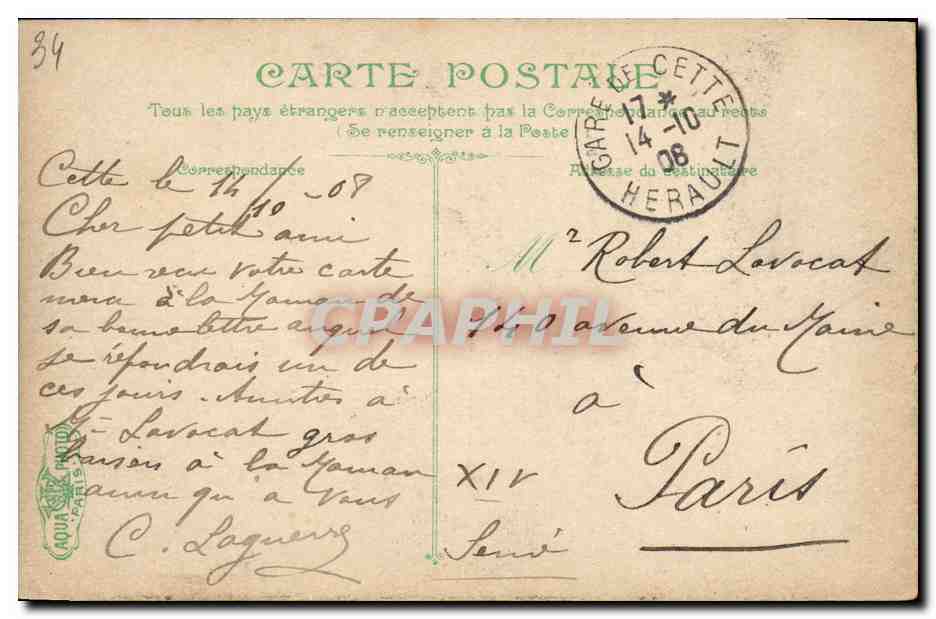 34
CARTE POSTALE
Tous les pays étrangers n'acceptent pas la Correspondance au recto
(Se renseigner à la Poste)
Correspondance
Adresse du destinataire
GARE DE CETTE
17 *
14-10
08
HERAULT
Cette le 14/10-08
Cher petit ami
Bien reçu votre carte
merci à la Maman de
sa bonne lettre auquel
je répondrais un de
ces jours. Amitiés à
Mr Lavocat gros
baisers à la Maman
ainsi qu'a vous
C. Laguerre
Mr Robert Lavocat
140 avenue du Maine
à
Paris
XIV
Seine
AQUA PHOTO
PARIS
CPAPHIL